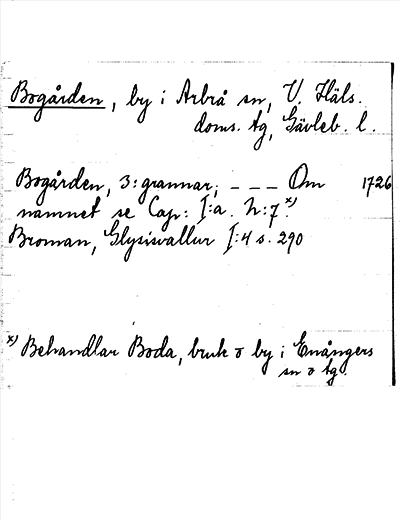 Bogården, by i Arbrå sn, V. Häls.
doms. tg, Gävleb. l.
Bogården, 3: grannar; - - - Om 1726
namnet se Cap: I:a. N:7 x)
Broman, Glysisvallur I:4 s. 290
x) Behandlar Boda, bruk o by i Enångers
sn o tg.